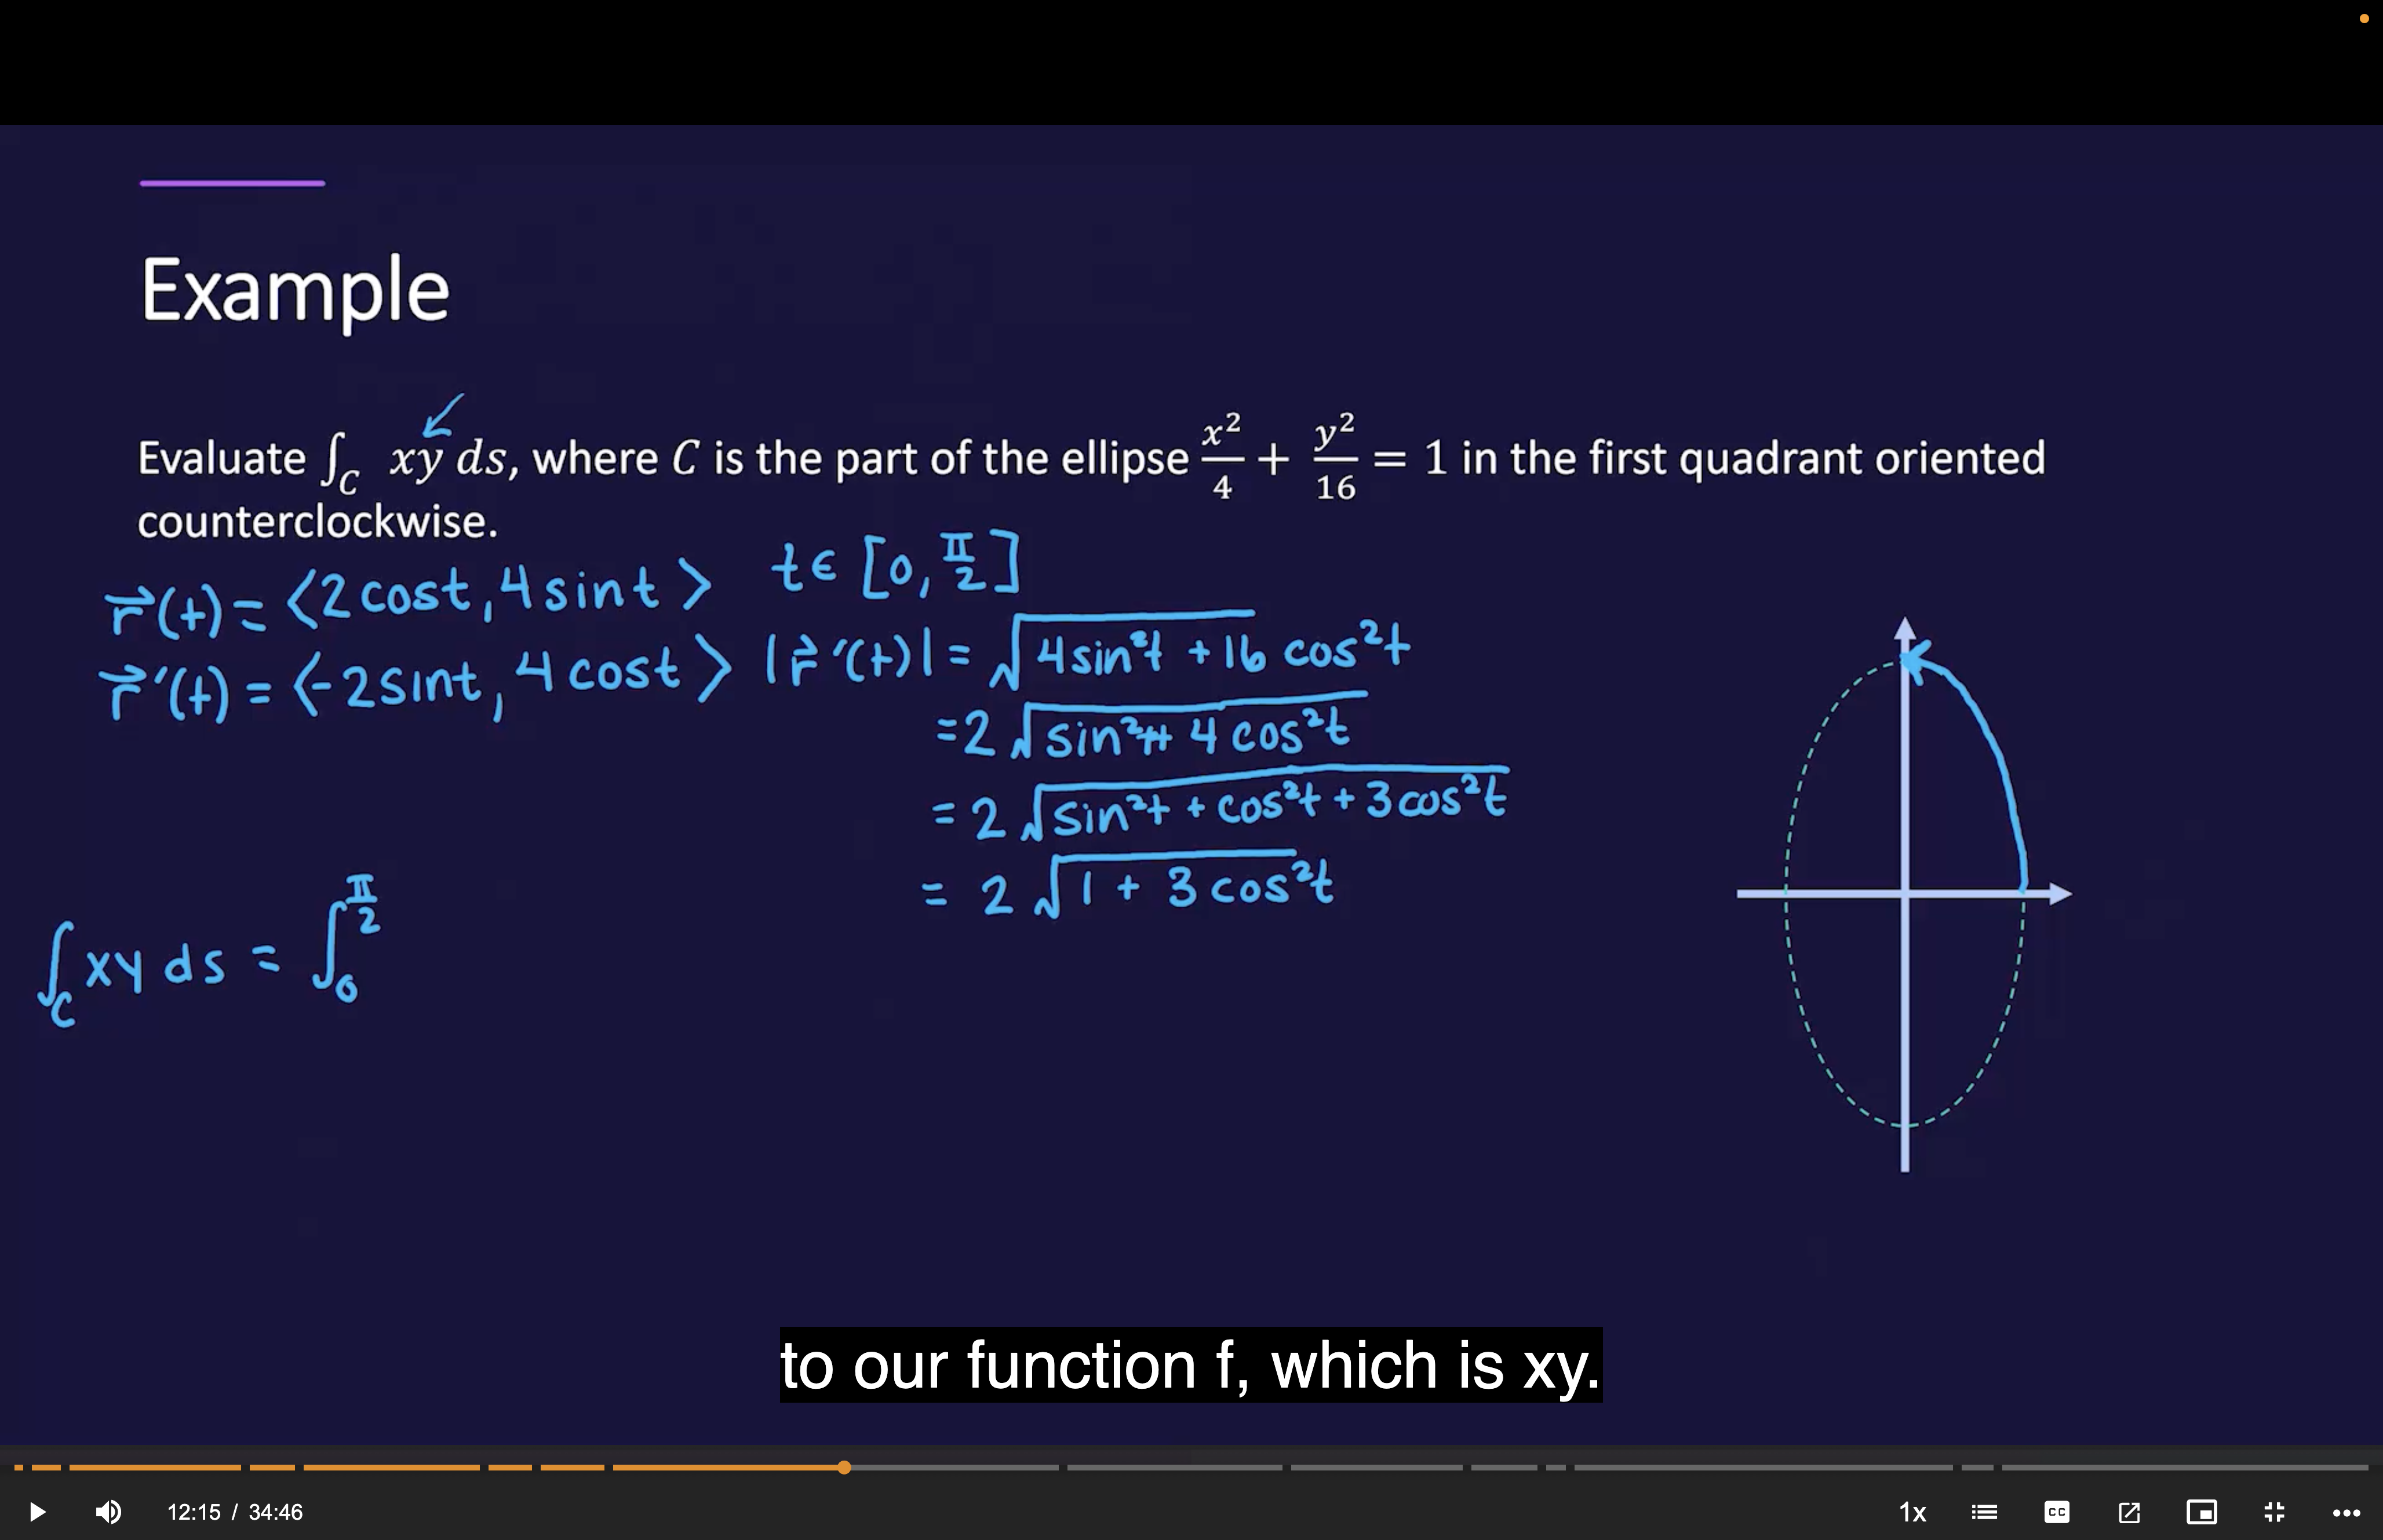 Example
Evaluate ∫_C xy ds, where C is the part of the ellipse x²/4 + y²/16 = 1 in the first quadrant oriented
counterclockwise.
r⃗(t) = ⟨2cost, 4sint⟩ t∈[0, π/2]
r⃗′(t) = ⟨-2sint, 4cost⟩ |r⃗′(t)| = √(4sin²t + 16 cos²t)
= 2√(sin²t + 4 cos²t)
= 2√(sin²t + cos²t + 3cos²t)
= 2√(1 + 3cos²t)
∫_C xy ds = ∫_0^{π/2}
to our function f, which is xy.
12:15 / 34:46 1x CC